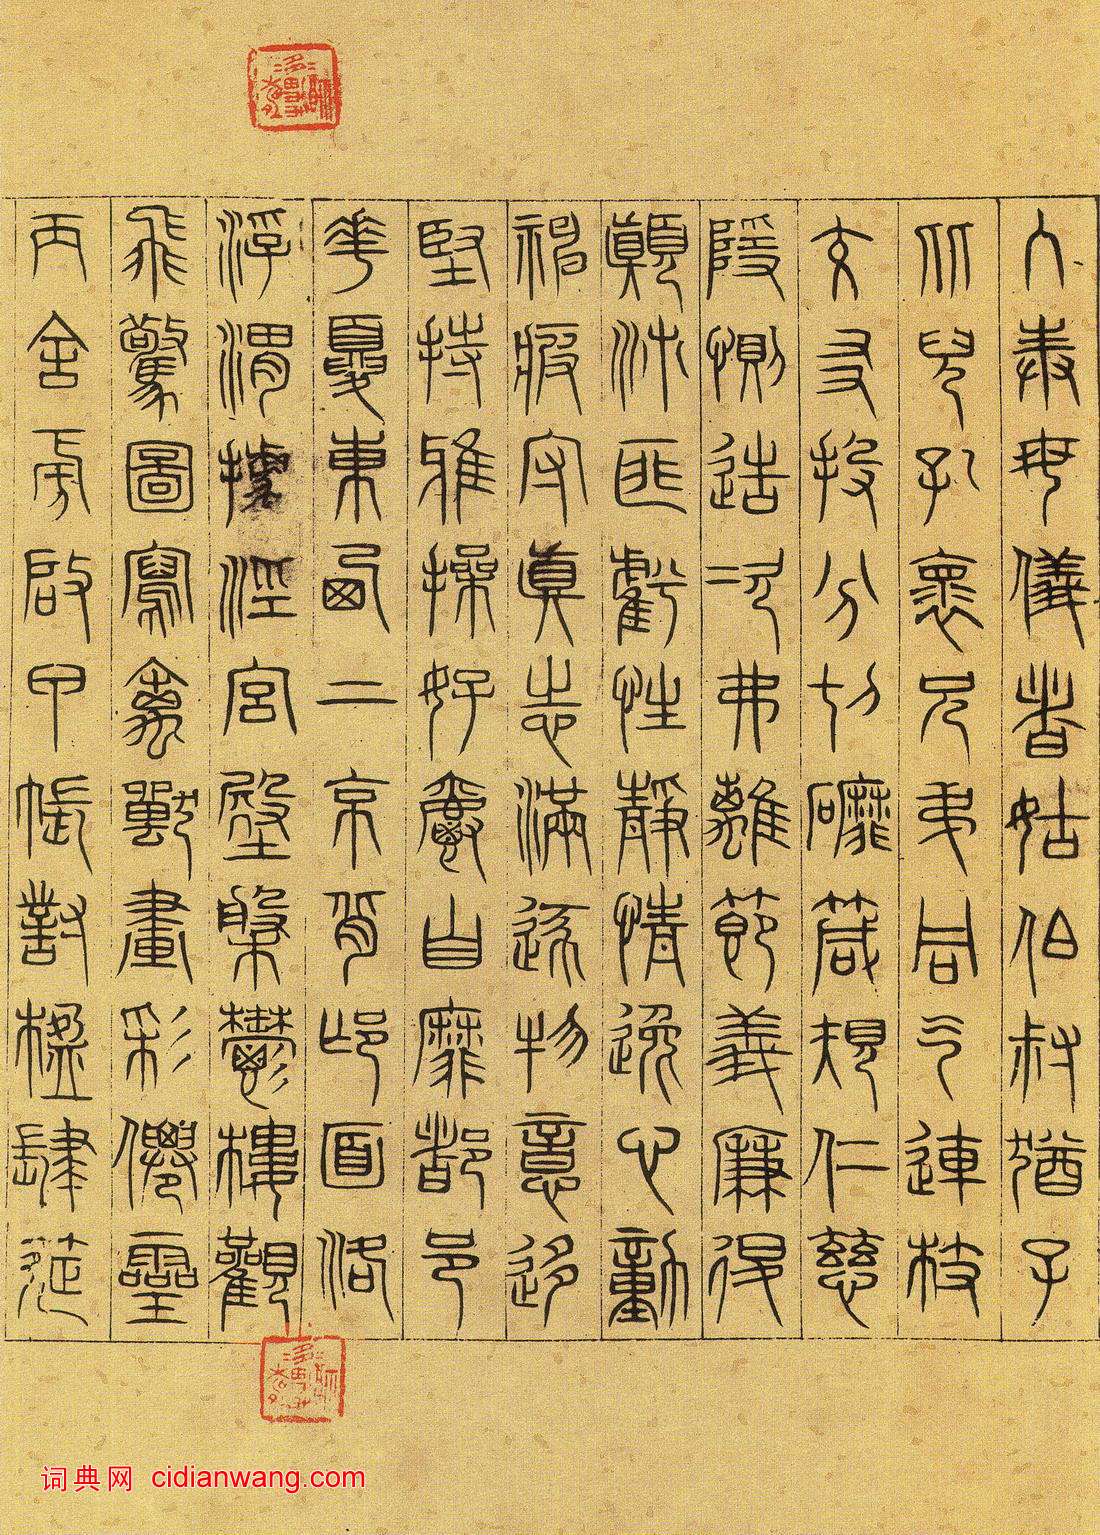 入奉母儀諸姑伯叔猶子
比兒孔懷兄弟同气連枝
交友投分切磨箴規仁慈
隱惻造次弗離節義廉退
顛沛匪虧性靜情逸心動
神疲守真志滿逐物意移
堅持雅操好爵自縻都邑
華夏東西二京背邙面洛
浮渭據涇宮殿盤鬱樓觀
飛驚圖寫禽獸畫彩仙靈
丙舍傍啟甲帳對楹肆筵
词典网 cidianwang.com